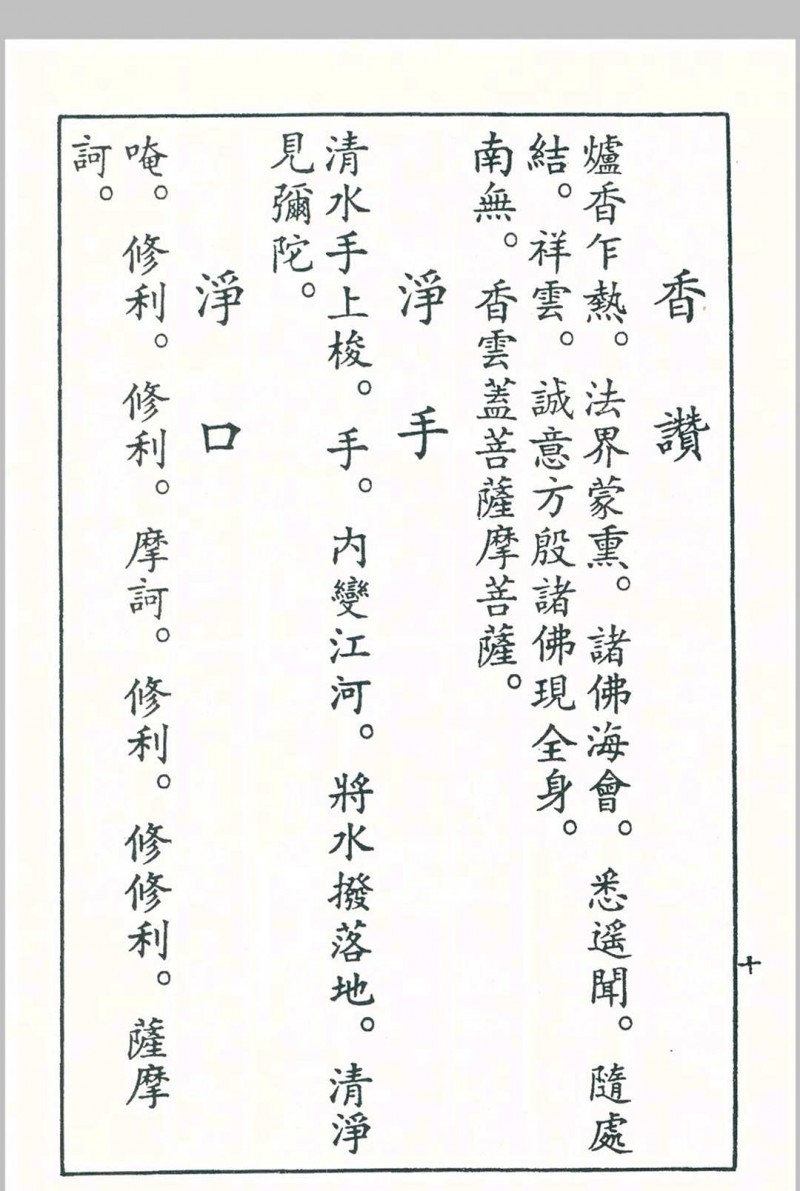 香讚
爐香乍熱。法界蒙熏。諸佛海會。悉遥聞。隨處
結。祥雲。誠意方殷諸佛現全身。
南無。香雲蓋菩薩摩菩薩。
淨手
清水手上梭。手。内變江河。將水撥落地。清淨
見彌陀。
淨口
唵。修利。修利。摩訶。修利。修修利。薩摩
訶。
十